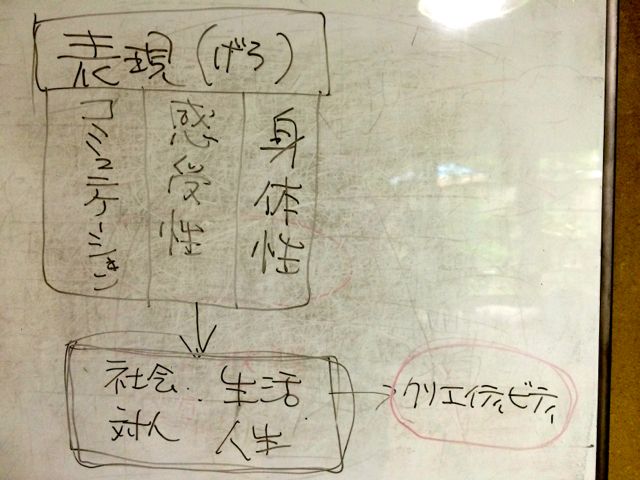 表現(げろ)
身体性
感受性
コミュニケーション
社会・生活
対人 人生
クリエイティビティ